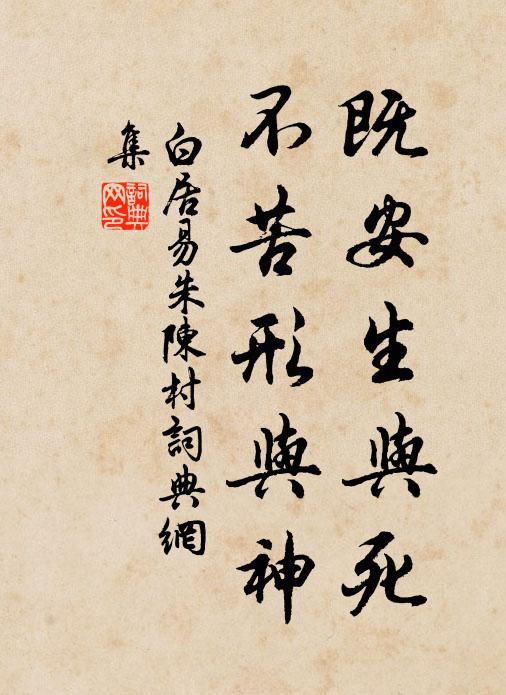 既安生與死
不苦形與神
白居易朱陳村詞典網
集
詞典
网印